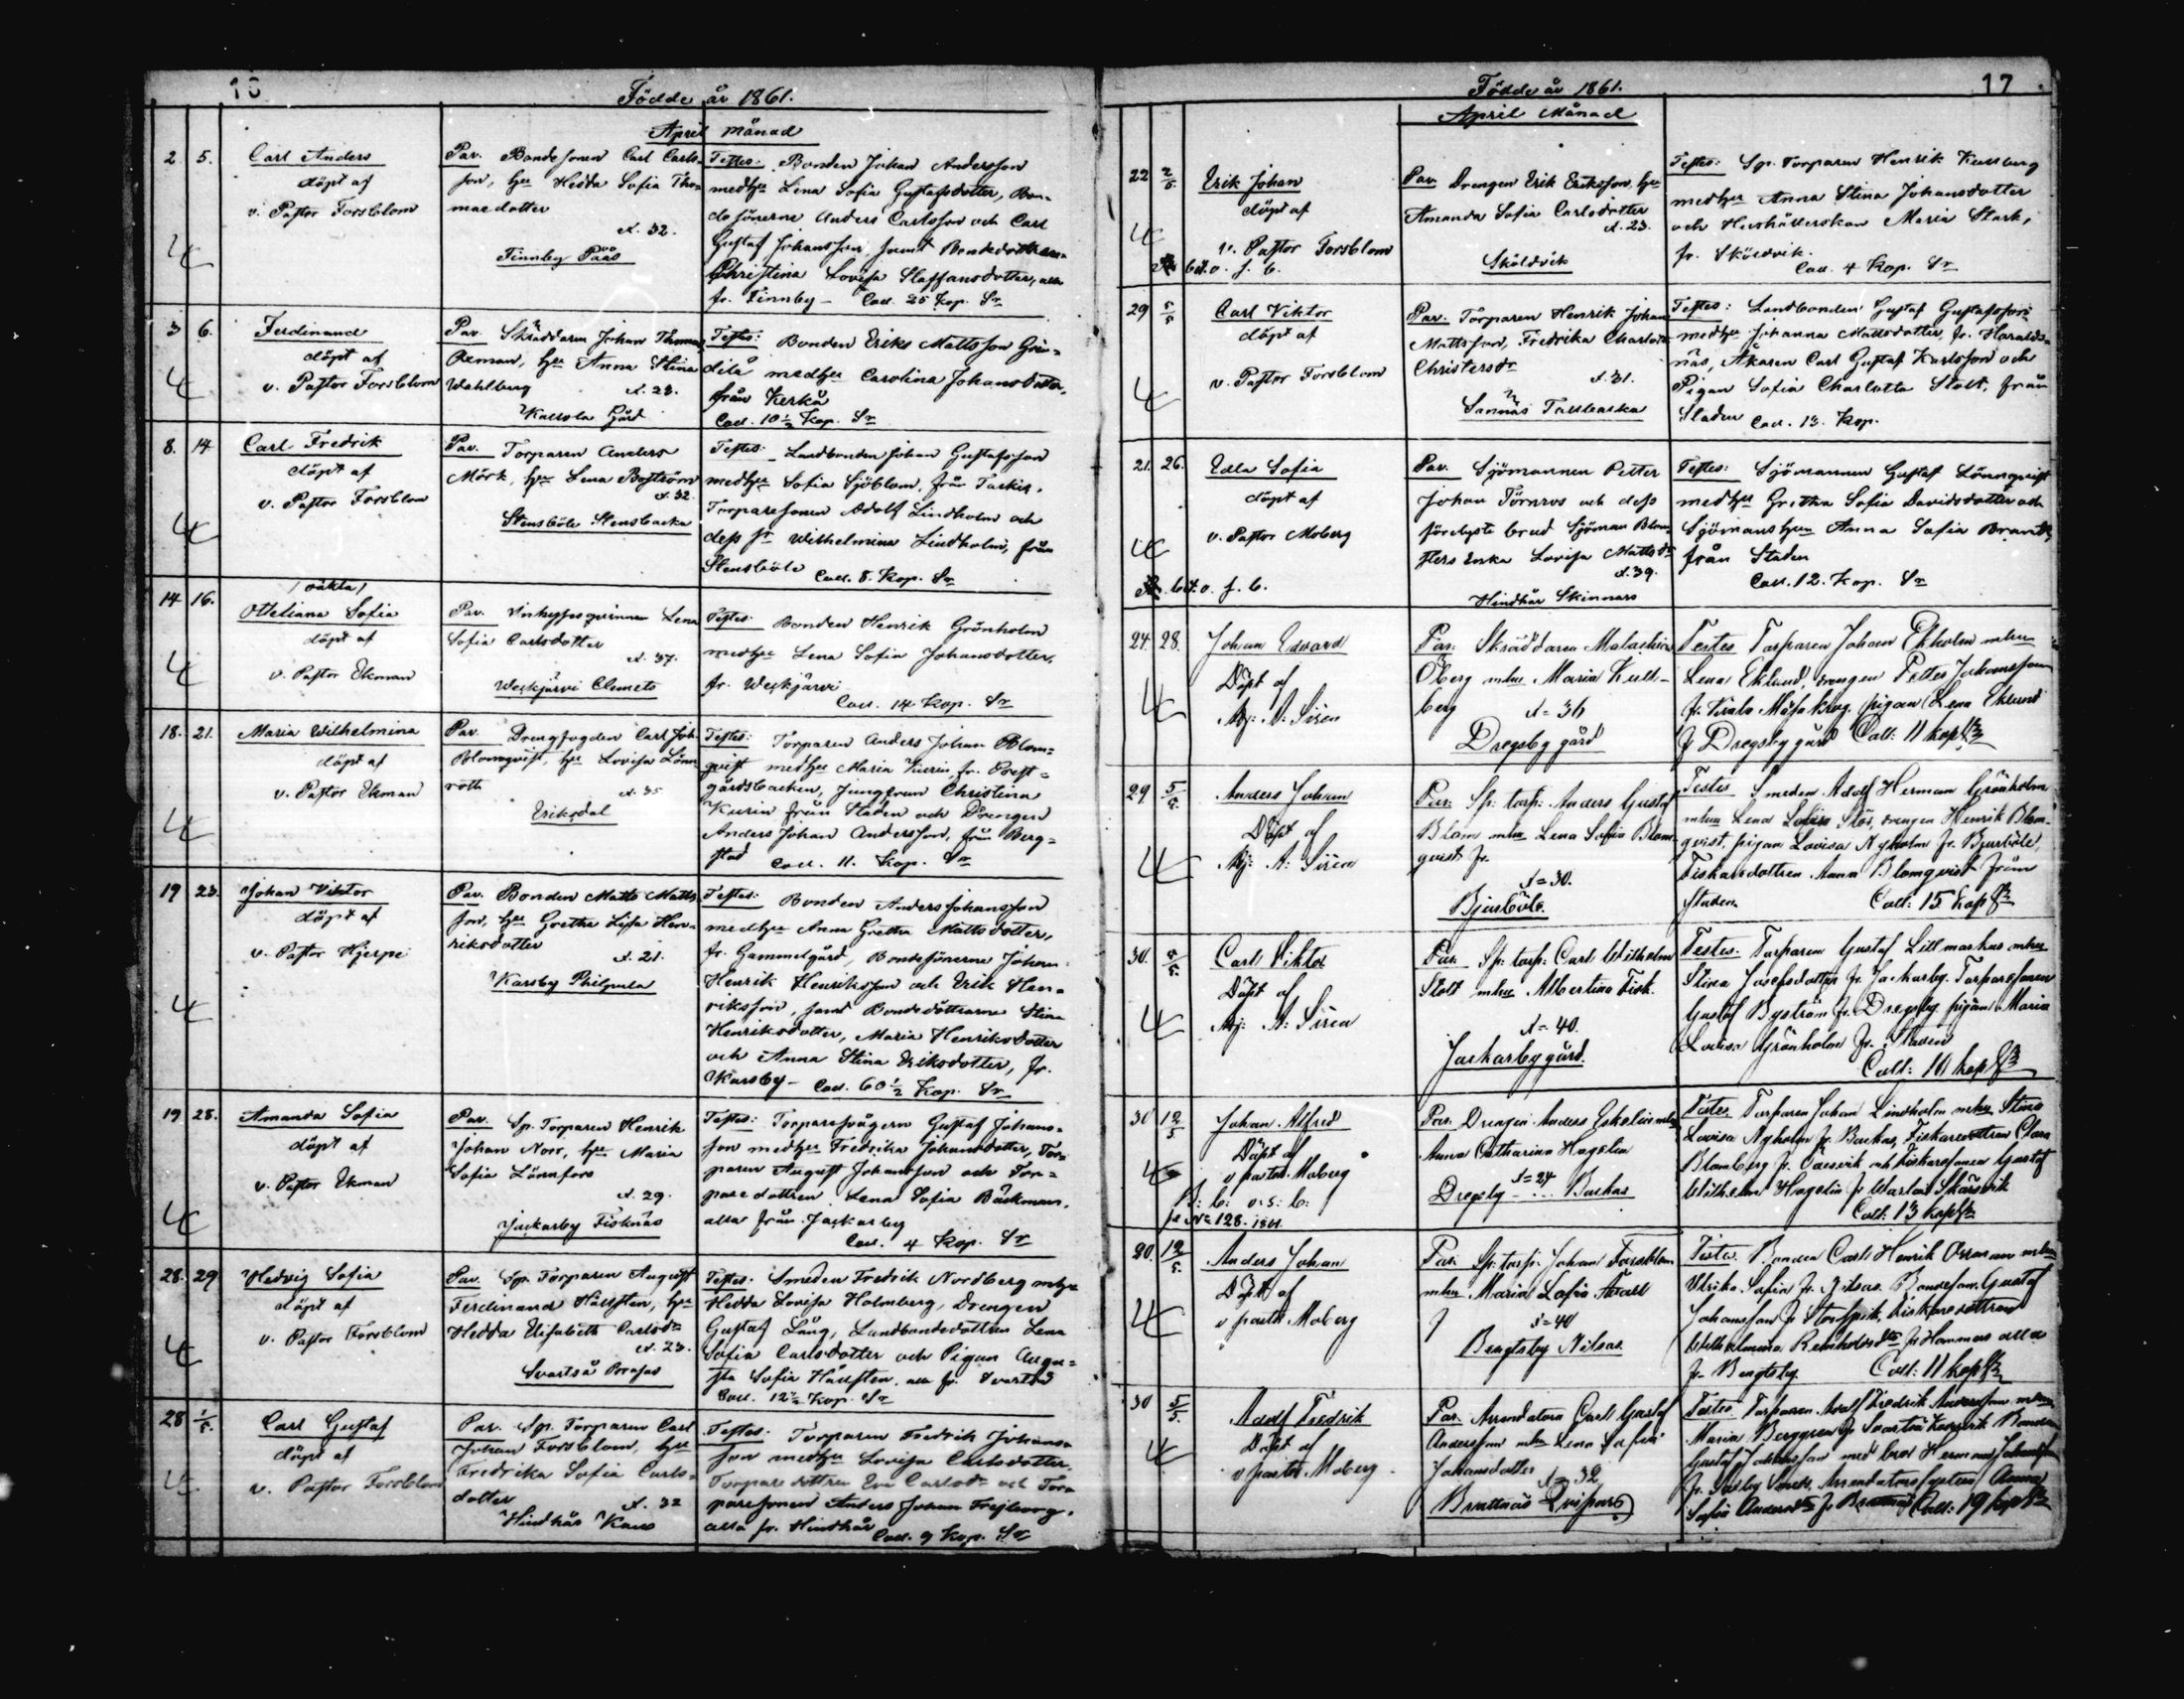 Födde år 1861.
April Månad
2 5. Carl Anders
döpt af
v. Pastor Forsblom
Par. Bondesonen Carl Carls-
son, hu Hedda Sofia Tho-
masdotter
æt. 32.
Finnby Påås
Testes: Bonden Johan Andersson
med hu Lena Sofia Gustafsdotter, Bon-
desönerne Anders Carlsson och Carl
Gustaf Johansson, samt Bondedottren
Christina Lovisa Staffansdotter, alla
fr. Finnby - Coll. 25 Kop. Sr
3 6. Ferdinand
döpt af
v. Pastor Forsblom
Par. Skräddaren Johan Thomas
Öhman, hu Anna Stina
Wahlberg æt. 28.
Kallola Gård
Testes: Bonden Eriks Mattsson Grän-
dilä med hu Carolina Johansdotter,
från Kerko
Coll. 10½ Kop. Sr
8. 14 Carl Fredrik
döpt af
v. Pastor Forsblom
Par. Torparen Anders
Mörk, hu Lena Boström
æt. 32
Stensböle Stensbacka
Testes: Landbonden Johan Gustafsson
med hu Sofia Sjöblom, från Tarkis,
Torparesonen Adolf Lindholm och
dess sr Wilhelmina Lindholm, från
Stensböle Coll. 8. Kop. Sr
/ oäkta /
14 16. Otteliana Sofia
döpt af
v. Pastor Ekman
Par. Inhysesqvinnan Lena
Sofia Carlsdotter
æt. 37.
Weckjärvi Clemets
Testes: Bonden Henrik Grönholm
med hu Lena Sofia Johansdotter,
fr. Weckjärvi
Coll. 14 Kop. Sr
18. 21. Maria Wilhelmina
döpt af
v. Pastor Ekman
Par. Drengfogden Carl Joh.
Blomqvist, hu Lovisa Lönn-
roth
æt. 35
Eriksdal
Testes: Torparen Anders Johan Blom-
qvist med hu Maria Kurin, fr. Prest-
gårdsbacken, Jungfrun Christina
Kurin från Staden och Drengen
Anders Johan Andersson, från Berg-
stad Coll. 11. Kop. Sr
19 23. Johan Viktor
döpt af
v. Pastor Hjerpe
Par. Bonden Matts Matts-
son, hu Gretha Lisa Hen-
riksdotter
æt. 21.
Karsby Philpula
Testes: Bonden Anders Johansson
med hu Anna Gretha Mattsdotter,
fr. Gammelgård, Bondesönerne Johan
Henrik Henriksson och Erik Hen-
riksson, samt Bondedöttrarne Stina
Henriksdotter, Maria Henriksdotter
och Anna Stina Eriksdotter, fr.
Karsby - Coll. 60½ Kop. Sr
19 28. Amanda Sofia
döpt af
v. Pastor Ekman
Par. Sp. Torparen Henrik
Johan Norr, hu Maria
Sofia Lönnfors
æt. 29.
Jackarby Fisknäs
Testes: Torparesvågern Gustaf Johans-
son med hu Fredrika Johansdotter, Tor-
paren August Johansson och Tor-
paredottren Lena Sofia Bäckman,
alla från Jackarby
Coll. 4 Kop. Sr
28. 29 Hedvig Sofia
döpt af
v. Pastor Forsblom
Par. Sp. Torparen August
Ferdinand Hällsten, hu
Hedda Elisabeth Carlsdr
æt. 23.
Svartså Brasas
Testes: Smeden Fredrik Nordberg m hu
Hedda Lovisa Holmberg, Drengen
Gustaf Lång, Landbondedottren Lena
Sofia Carlsdotter och Pigan Augu-
sta Sofia Hällsten, alla fr. Svartså
Coll. 12½ Kop. Sr
28 1/5. Carl Gustaf
döpt af
v. Pastor Forsblom
Par. Sp. Torparen Carl
Johan Forsblom, hu
Fredrika Sofia Carls-
dotter æt. 32
Hindhår Kass
Testes: Torparen Fredrik Johans-
son med hu Lovisa Carlsdotter,
Torparedottren Eva Carlsdr och Tor-
paresonen Anders Johan Frejborg,
alla fr. Hindhår Coll. 9 Kop. Sr
Födde år 1861. 17
April Månad
22 2/5 Erik Johan
döpt af
v. Pastor Forsblom
bet. o. f. b.
Par. Drengen Erik Eriksson, hu
Amanda Sofia Carlsdotter
æt. 23.
Sköldvik
Testes: Sp. Torparen Henrik Kullberg
med hu Anna Stina Johansdotter
och Hushållerskan Maria Stark,
fr. Sköldvik.
Coll. 4 Kop. Sr
29 5/5 Carl Viktor
döpt af
v. Pastor Forsblom
Par. Torparen Henrik Johan
Mattsson, Fredrika Charlotta
Christersdr
æt. 31.
Sannäs Tallbacka
Testes: Landbonden Gustaf Gustafsson
med hu Johanna Mattsdotter, fr. Haralds-
näs, Åkaren Carl Gustaf Karlsson och
Pigan Sofia Charlotta Stolt, från
Staden Coll. 13. Kop.
21. 26. Edla Sofia
döpt af
v. Pastor Moberg
bet. o. f. b.
Par. Sjömannen Petter
Johan Törnros och dess
förelyste brud Sjöman Blom-
sters Enka Lovisa Mattsdr
æt. 39.
Hindhår Skinnars
Testes: Sjömannen Gustaf Lönnqvist
med hu Gretha Sofia Davidsdotter och
Sjömanshun Anna Sofia Brandt,
från Staden
Coll. 12. Kop. Sr
24. 28. Johan Edvard
Döpt af
Adj. A: Sirén
Par. Skräddaren Malachias
Öberg m hu Maria Kull-
berg æt = 36
Dregsby gård
Testes Torparen Johan Ekholm m hu
Lena Eklund, drengen Petter Johansson
fr. Kiala Måsakrog, pigan Lena Eklund
fr Dregsby gård Coll: 11 kop Sr
29 5/5. Anders Johan
Döpt af
Adj: A: Sirén
Par. Sp: torp: Anders Gustaf
Blom m hu Lena Sofia Blom-
qvist fr.
æt = 30.
Bjurböle.
Testes Smeden Adolf Herman Grönholm
m hu Lena Lovisa Stör, drengen Henrik Blom-
qvist, pigan Lovisa Nyholm fr. Bjurböle,
Fiskaredottren Anna Blomqvist från
Staden. Coll: 15 kop Sr
30. 5/5. Carl Viktor
Döpt af
Adj: A: Sirén
Par. Sp: torp: Carl Wilhelm
Stolt m hu Albertina Fisk.
æt = 40.
Jackarby gård.
Testes. Torparen Gustaf Lillmarkus m hu
Stina Josefsdotter fr. Jackarby. Torparesonen
Gustaf Byström fr. Dregsby, pigan Maria
Lovisa Grönholm fr. Staden
Coll: 10 kop Sr
30 12/5 Johan Alfred
Döpt af
v pastor Moberg
B: b: o: s: b:
fr No 128. 1861.
Par. Drengen Anders Eskelin m hu
Anna Catharina Hagelin
æt = 24
Dregsby - ... Backas
Testes. Torparen Johan Lindholm m hu Stina
Lovisa Nyholm fr. Backas, Fiskaredottren Clara
Blomberg fr. och Fiskaresonen Gustaf
Wilhelm Hagelin fr Skarsvik
Coll: 13 kop Sr
20. 12/5. Anders Johan
Döpt af
v pastor Moberg
Par. Sp: torp: Johan Forsblom
m hu Maria Sofia
æt = 40
Bengtsby Nilsas.
Testes. Bonden Carl Henrik Ossman m hu
Ulrika Sofia fr. Nilsas. Bondeson. Gustaf
Johansson fr Storpspik, Fiskaredottren
Wilhelmina Reinholdsdr fr Hammars alla
fr. Bengtsby. Coll: 11 kop Sr
30 5/5. Adolf Fredrik
Döpt af
v pastor Moberg.
Par. Arrendatorn Carl Gustaf
Andersson m hu Lena Sofia
Johansdotter æt = 32
Brattnäs Qvispars
Testes. Torparen Adolf Fredrik Andersson m hu
Maria Berggren fr Svartså Bonden
Gustaf Johansson med brod Herman Johansson
fr. Arrendators systern Anna
Sofia Andersdr fr Brattnäs Coll: 19 kop Sr